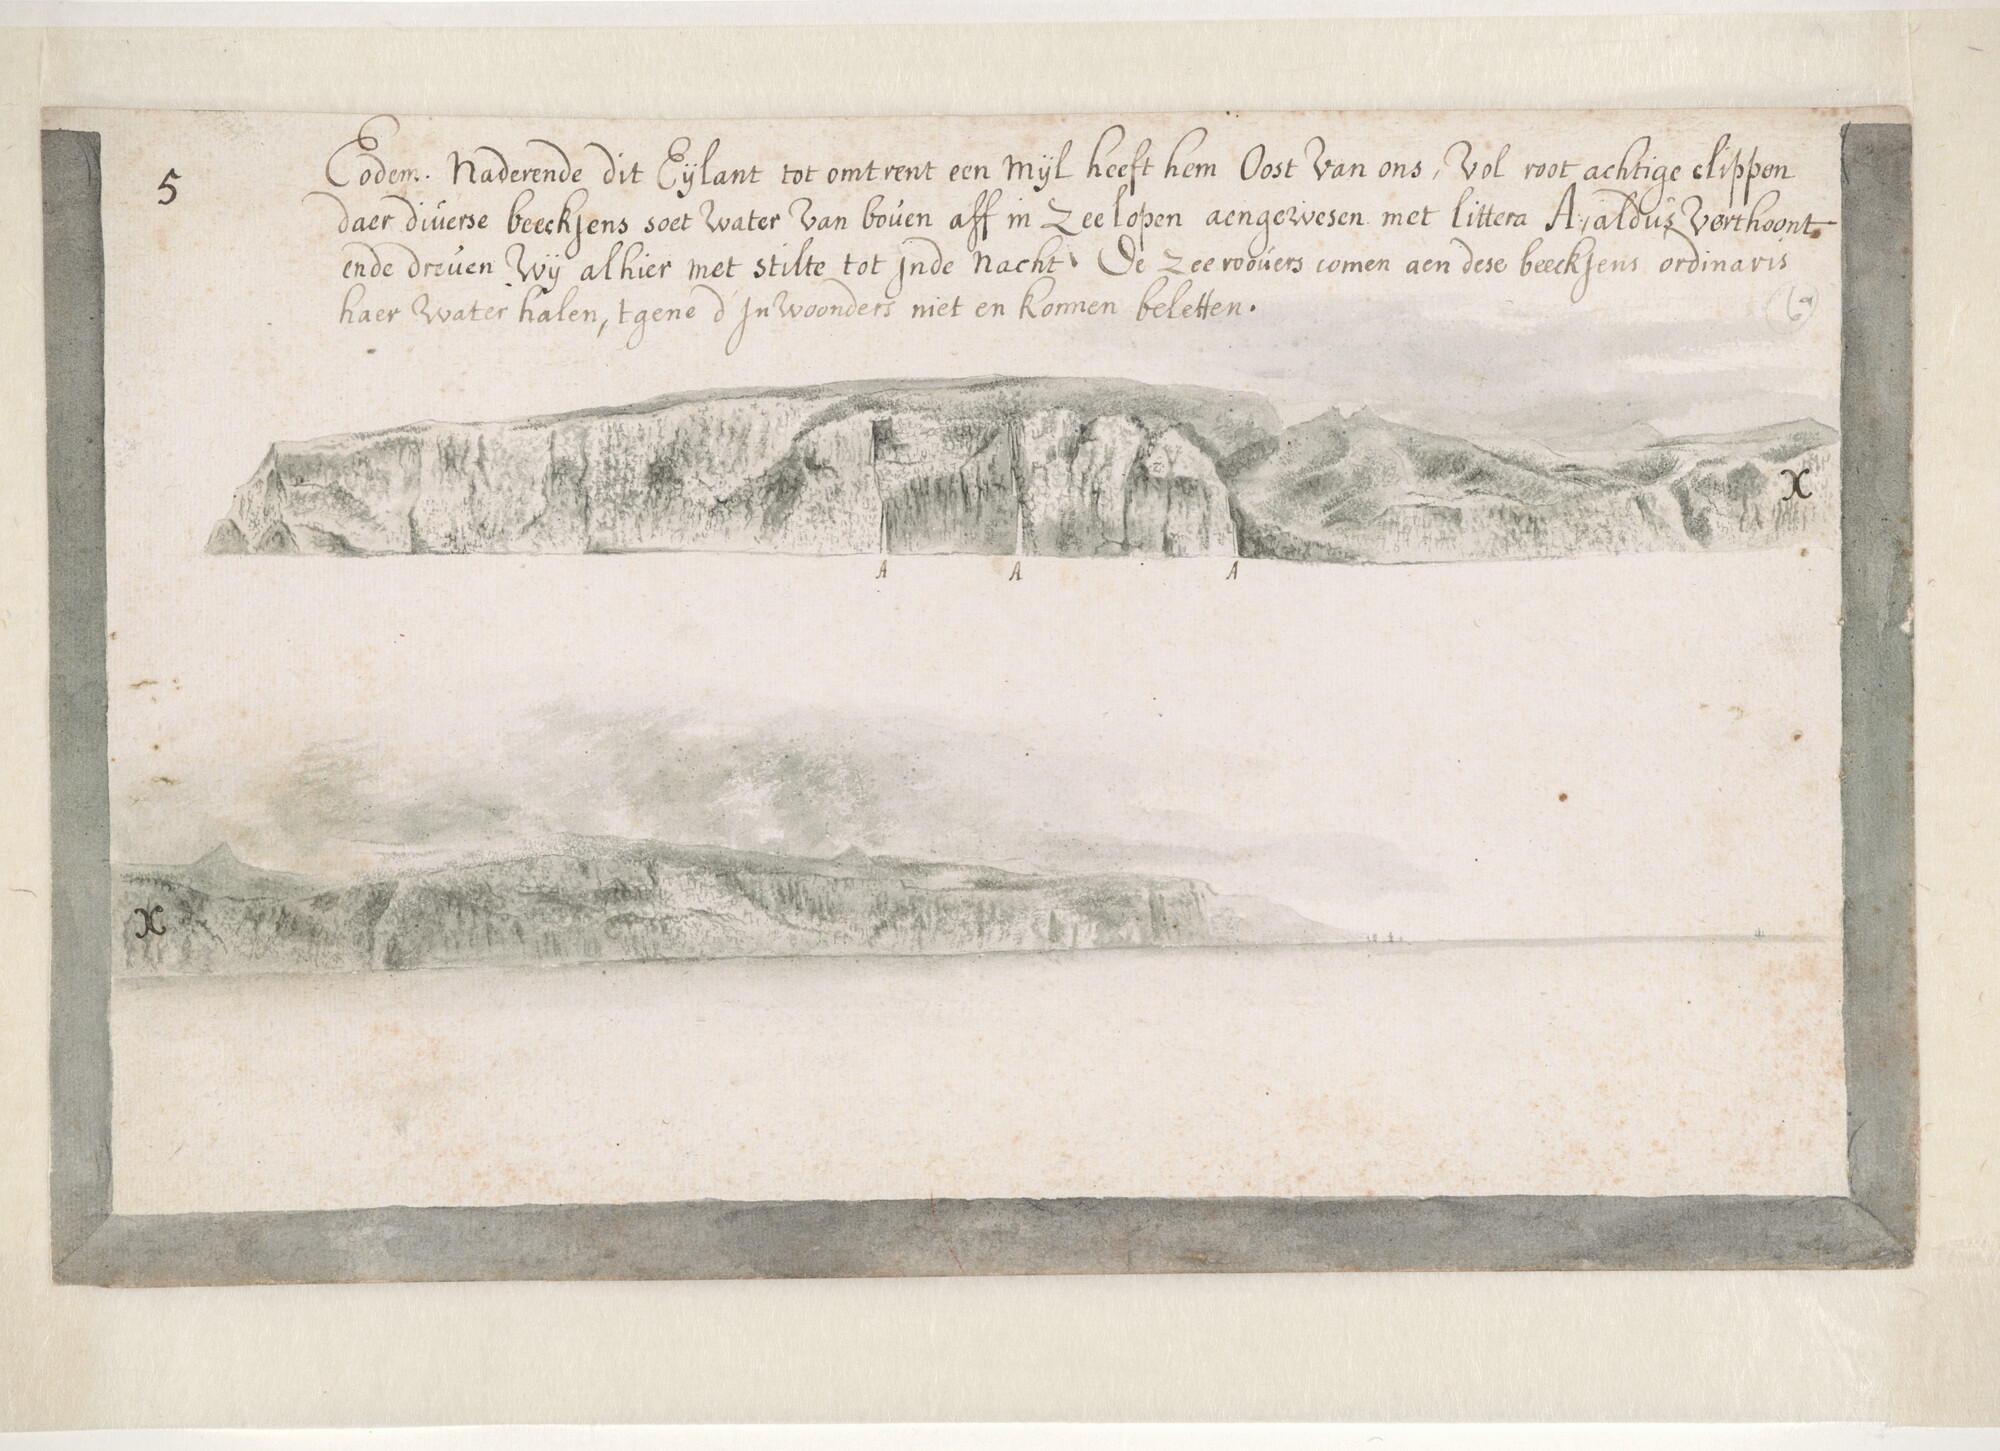 5
Eodem. Naderende dit Eylant tot omtrent een Mijl heeft hem Oost van ons, vol root achtige clippen
daer diverse beeckjens soet water van boven aff in Zee lopen aengewesen met littera A, aldus verthoont
ende dreven wij alhier met stilte tot jnde nacht. De Zeeroovers comen aen dese beeckjens ordinaris
haer water halen, tgene d'Jnwoonders niet en konnen beletten.
X
A A A
X